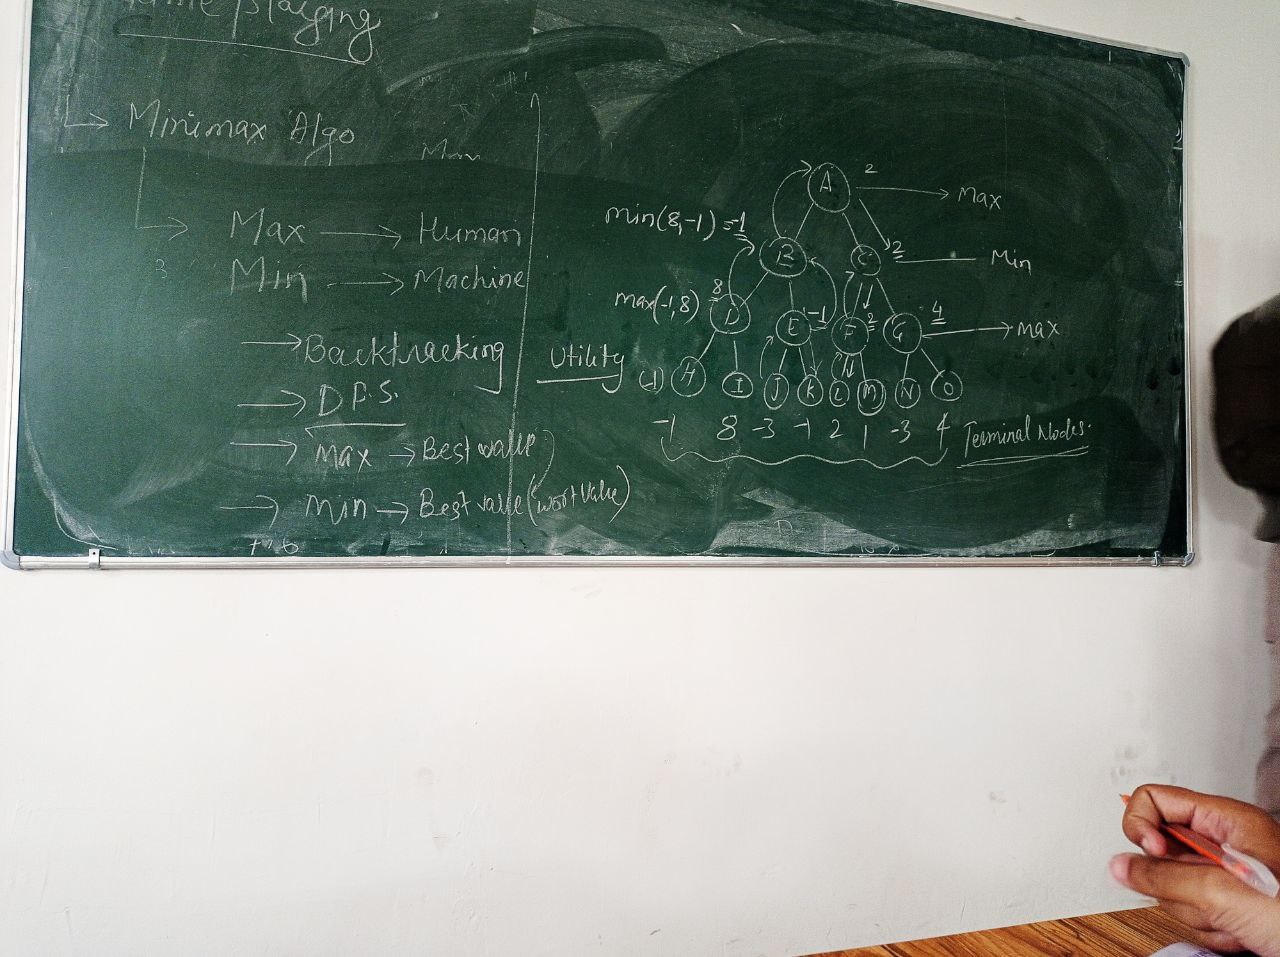 playing
Minimax Algo
Max
Max → Human
3 Min → Machine
→ Backtracking
→ D.F.S.
→ max → Best value
→ min → Best value (worst value)
A 2 → max
min(8,-1) = -1
B C 2 Min
max(-1,8) 8 D E -1 F 2 G 4 → max
Utility (-1) H I J K L M N O
-1 8 -3 -1 2 1 -3 4 Terminal Nodes.